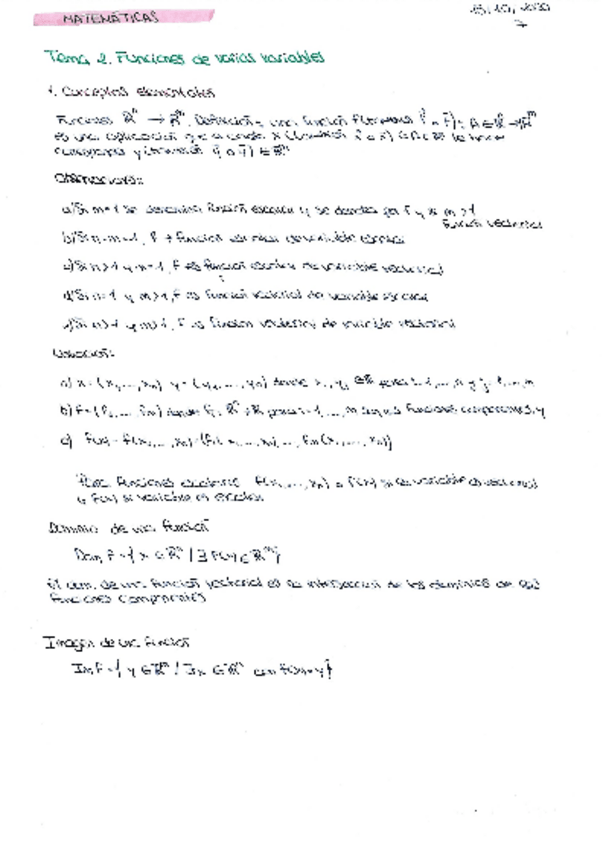 MATEMÁTICAS
Tema 2. Funciones de varias variables
1. Conceptos elementales
Funciones ℝⁿ → ℝᵐ. Definición: una función f: A ∈ ℝⁿ → ℝᵐ
es una aplicación que a cada x
Observaciones:
a) Si m=1 se denomina función escalar y se denota por f y si m>1
función vectorial
b) Si n=m=1, f → función escalar de variable escalar
c) Si n>1 y m=1, f es función escalar de variable vectorial
d) Si n=1 y m>1, f es función vectorial de variable escalar
e) Si n>1 y m>1, f es función vectorial de variable vectorial
Notación:
a) x = (x₁, ..., xₙ) y = (y₁, ..., yₘ) donde
b) f = (f₁, ..., fₘ) donde fᵢ: ℝⁿ → ℝ para i=1, ..., m son sus funciones componentes, y
c) f(x) = f(x₁, ..., xₙ) = (f₁(x₁, ..., xₙ), ..., fₘ(x₁, ..., xₙ))
Para funciones escalares f(x₁, ..., xₙ) o f(x) si la variable es vectorial
o f(x) si variable es escalar
Dominio de una función
Dom f = { x ∈ ℝⁿ / ∃ f(x) ∈ ℝᵐ }
El dom. de una función vectorial es la intersección de los dominios de sus
funciones componentes
Imagen de una función
Im f = { y ∈ ℝᵐ / ∃x ∈ ℝⁿ con f(x) = y }